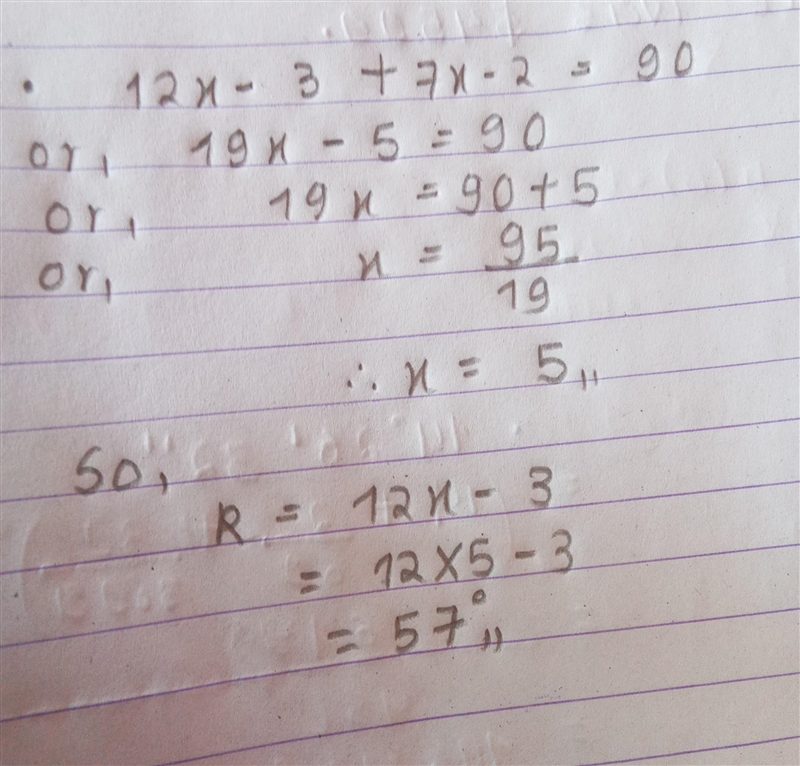 • 12x - 3 + 7x - 2 = 90
or, 19x - 5 = 90
or, 19x = 90 + 5
or, x = 95/19
∴ x = 5,,
So,
R = 12x - 3
= 12 × 5 - 3
= 57°,,